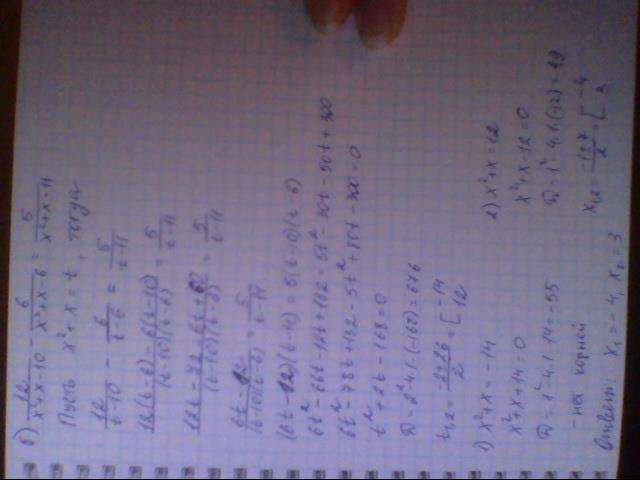 б) 12/(x²+x-10) - 6/(x²+x-6) = 5/(x²+x-11)
Пусть x²+x = t, тогда
12/(t-10) - 6/(t-6) = 5/(t-11)
(12(t-6) - 6(t-10))/((t-10)(t-6)) = 5/(t-11)
(12t - 72 - 6t + 60)/((t-10)(t-6)) = 5/(t-11)
(6t - 12)/((t-10)(t-6)) = 5/(t-11)
(6t-12)(t-11) = 5(t-10)(t-6)
6t² - 66t - 12t + 132 = 5t² - 30t - 50t + 300
6t² - 78t + 132 - 5t² + 80t - 300 = 0
t² + 2t - 168 = 0
D = 2² - 4·1·(-168) = 676
t₁,₂ = (-2±26)/2 = [ -14 12
1) x²+x = -14
x²+x+14 = 0
D = 1² - 4·1·14 = -55
- нет корней
2) x²+x = 12
x²+x-12 = 0
D = 1² - 4·1·(-12) = 49
x₁,₂ = (-1±7)/2 = [ -4 3
Ответ: x₁ = -4, x₂ = 3